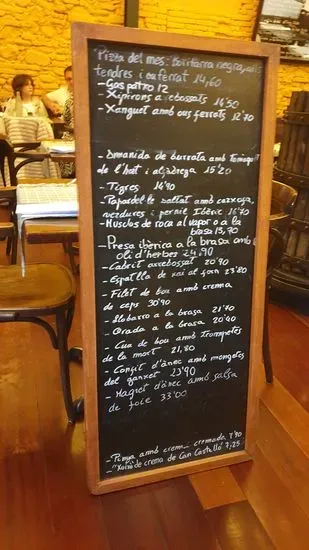 Pizza del mes: botifarra negra, alls
tendres i oaferrat 14,60
- Gaspatxo 12
- Xipirons arrebossats 14'50
- Xanguet amb ous ferrats 12'70
- Amanida de burrata amb tomaquet
de l'hort i alfàbrega 15'20
- Tigres 14'90
- Papardel·le saltat amb carxofa,
verdures i pernil Ibèric 16'70
- Musclos de roca al vapor o a la
brasa 15,70
- Presa ibèrica a la brasa amb
oli d'herbes 24,90
- Cabrit arrebossat 20'90
- Espatlla de xai al forn 23'80
- Filet de bou amb crema
de ceps 30'90
- Llobarro a la brasa 21'70
- Orada a la brasa 20'40
- Cua de bou amb trompetes
de la mort 21,80
- Confit d'ànec amb mongetes
del ganxet 23'90
- Magret d'ànec amb salsa
de foie 33'00
- Pinya amb crema cremada 7'90
- "Xuixo de crema de Can Castelló" 7,25